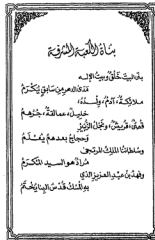 بناة الكعبة المشرفة
بنى البيت خلق وبيت الإله
مدى الدهر من سابق يكرم
ملائكة، آدم، ولده
خليل، عمالقة، جرهم
قصي، قريش، ونجل الزبير
وحجاج بعدهم يعلم
وسلطاننا الملك المرتجى
مراد هو السيد المكرم
وفهد بن عبد العزيز الذي
به الملك قدس